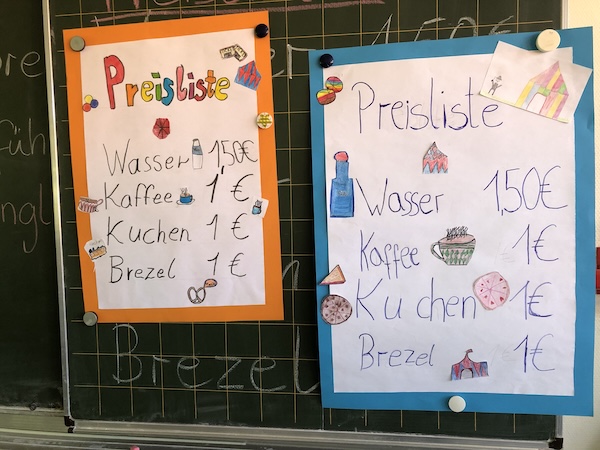 Preisliste
Wasser 1,50€
Kaffee 1€
Kuchen 1€
Brezel 1€
Preisliste
Wasser 1,50€
Kaffee 1€
Kuchen 1€
Brezel 1€
Brezel